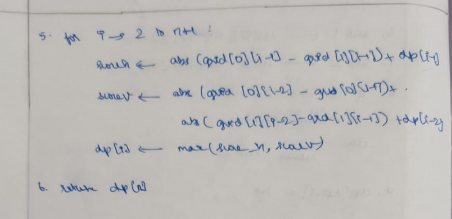 5. for i → 2 to n+1 :
← abs (grid [0] [i-1] - grid [1] [i-1]) + dp[i-1]
← abs (grid [0] [i-2] - grid [0] [i-1]) +
abs (grid [1] [i-2] - grid [1] [i-1]) + dp[i-2]
dp[i] ← max (
6. return dp[n]